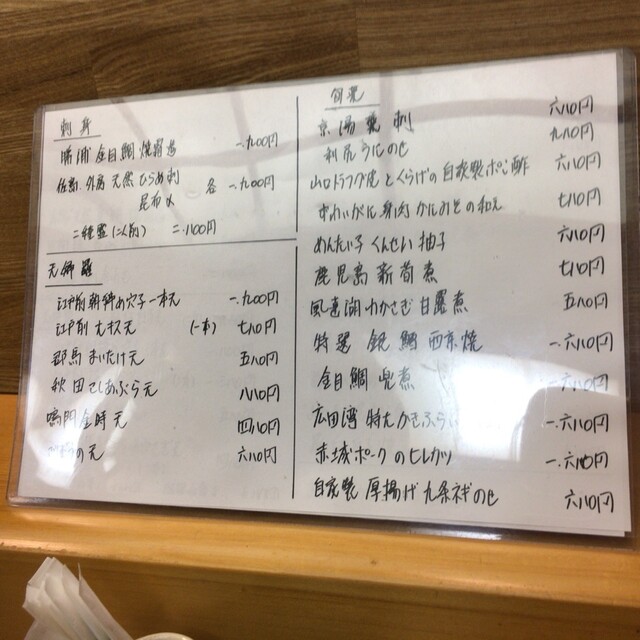 刺身
勝浦 金目鯛 焼霜造 一.九00円
佐島.外房 天然 ひらめ刺 各 一.九00円
昆布〆
二種盛(二人前) 二.八00円
天婦羅
江戸前新鮮め穴子一本天 一.九00円
江戸前 大キス天 (一本) 七八0円
群馬 まいたけ天 五八0円
秋田 こしあぶら天 八八0円
鳴門金時天 四八0円
の天 六八0円
京湯葉刺 六八0円
利尻うにのせ 九八0円
山口トラフグ皮とくらげの自家製ポン酢 六八0円
ずわいがに身肉かにみその和え 七八0円
めんたい子くんせい柚子 六八0円
鹿児島新筍煮 七八0円
風連湖わかさぎ甘露煮 五八0円
特選 銀鱈西京焼 一.六八0円
金目鯛兜煮 一.六八0円
広田湾 特大かきふらい 一.六八0円
赤城ポークのヒレカツ 一.六八0円
自家製厚揚げ九条ネギのせ 六八0円